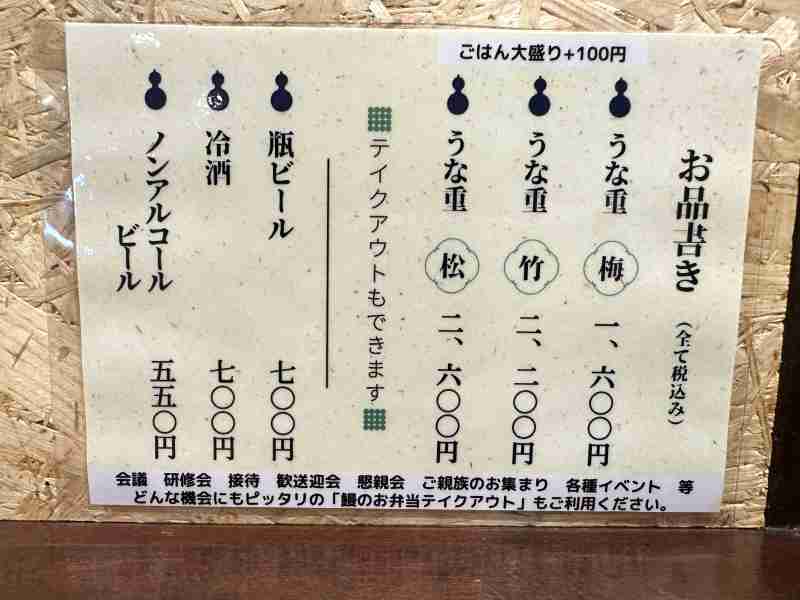 ごはん大盛り+100円
お品書き(全て税込み)
うな重 梅 一、六〇〇円
うな重 竹 二、二〇〇円
うな重 松 二、六〇〇円
テイクアウトもできます
瓶ビール 七〇〇円
冷酒 七〇〇円
ノンアルコール
ビール 五五〇円
会議 研修会 接待 歓送迎会 懇親会 ご親族のお集まり 各種イベント 等
どんな機会にもピッタリの「鰻のお弁当テイクアウト」もご利用ください。